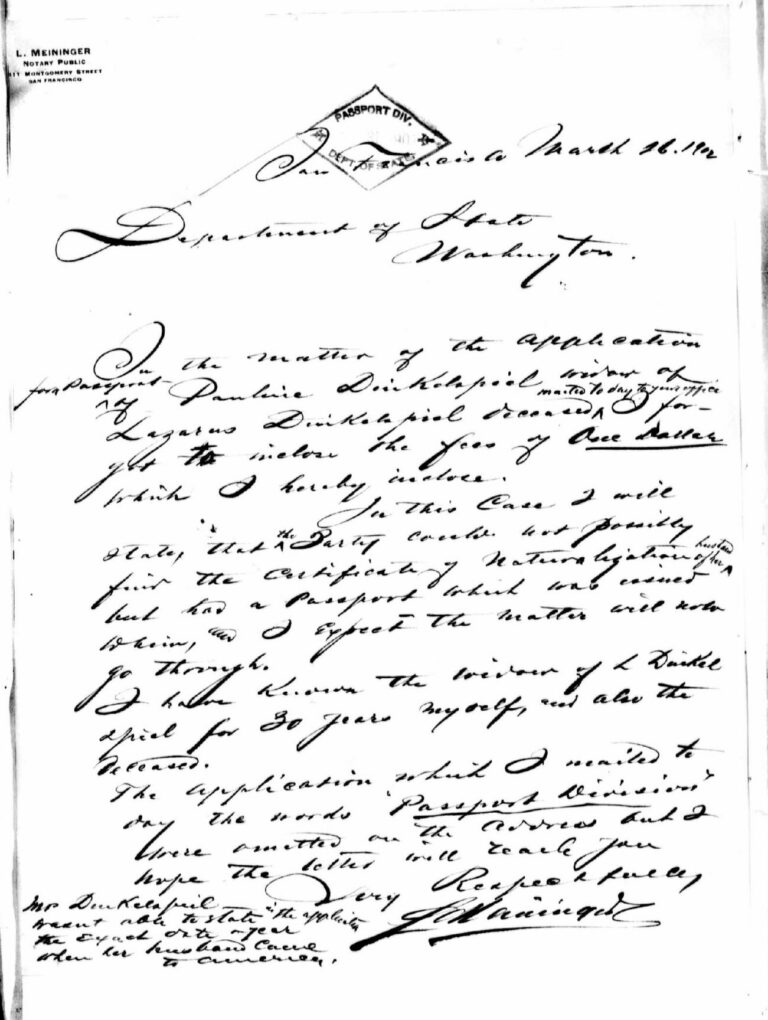 L. MEININGER
NOTARY PUBLIC
MONTGOMERY STREET
SAN FRANCISCO
PASSPORT DIV.
DEPT. OF STATE
San Francisco March 26. 1902
Department of State
Washington.
In the matter of the application
for a Passport
of Pauline Dinkelspiel widow of
mailed to day to your office
Lazarus Dinkelspiel deceased, I for-
got to inclose the fees of One Dollar
which I hereby inclose.
In this Case I will
state, that the Party could not possibly
find the Certificate of Naturalization of her husband
but had a Passport which was issued
, and I expect the matter will now
go through.
I have known the widow of L Dinkel
spiel for 30 years myself, and also the
deceased.
The application which I mailed to
day the words "Passport Division"
were omitted on the address but I
hope the letter will reach you
Very Respectfully
L Meininger
Mrs Dinkelspiel
wasn't able to state in the application
the exact date & year
when her husband came
to america.